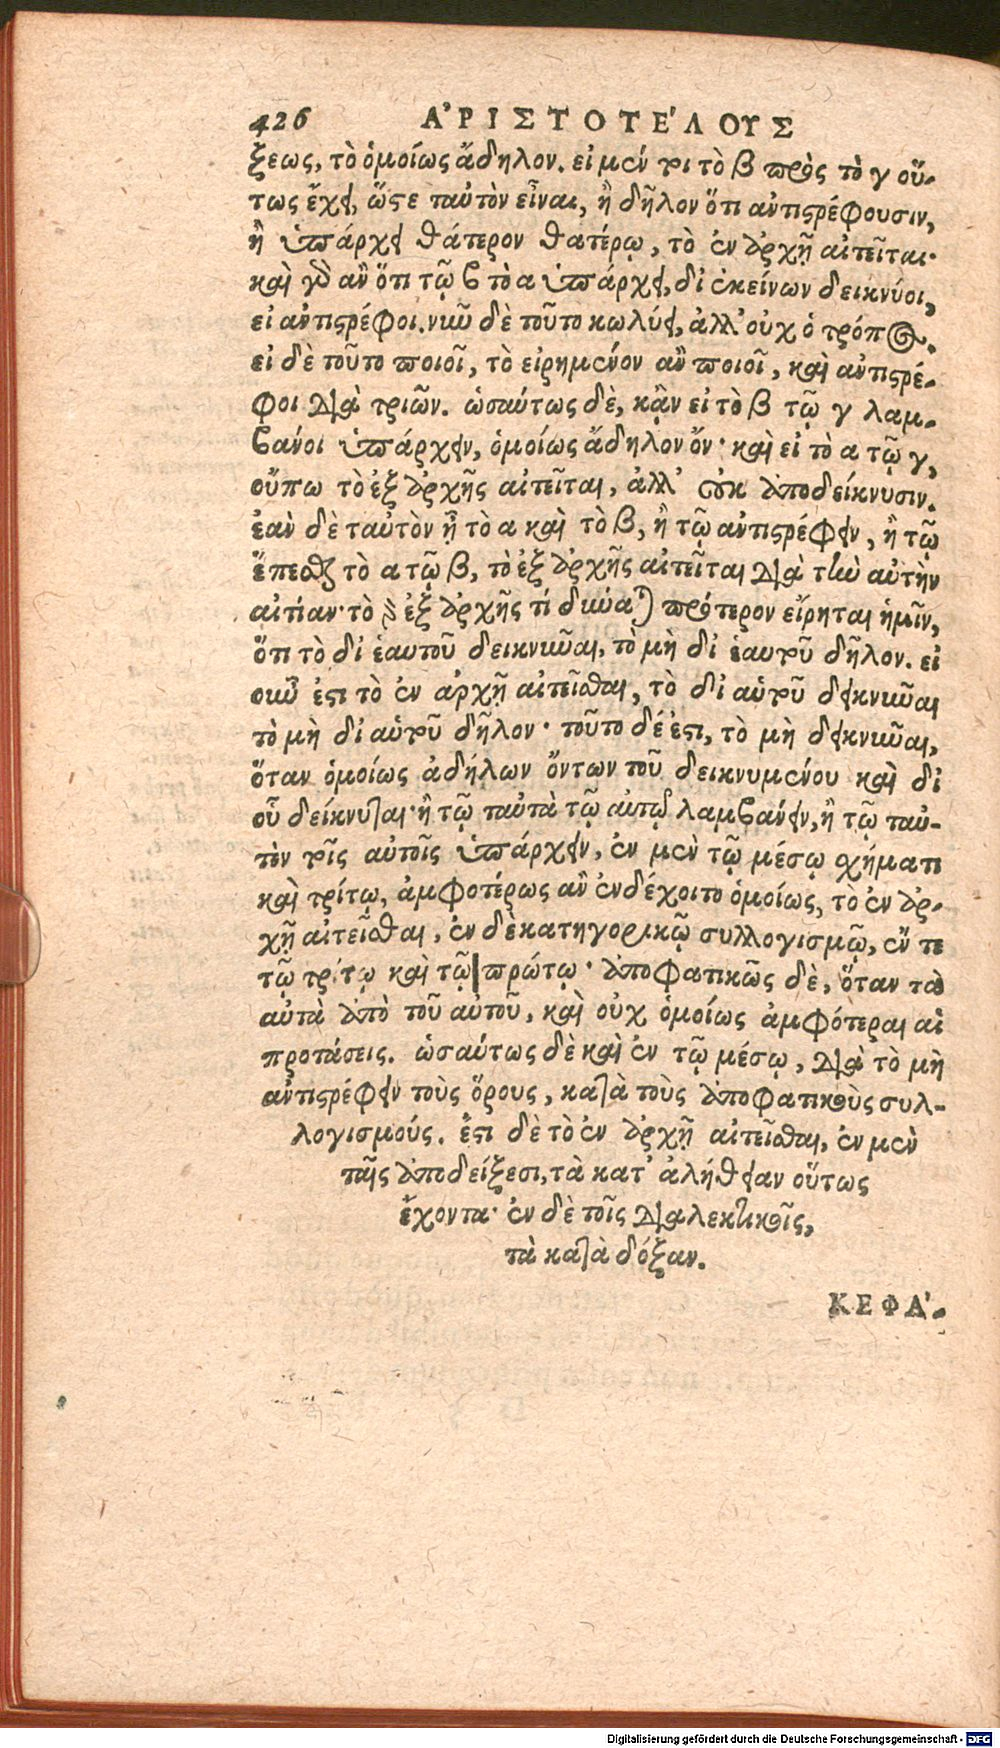 426 ΑΡΙΣΤΟΤΕΛΟΥΣ
ξεως, τὸ ὁμοίως ἄδηλον. εἰ μέν τοι τὸ β πρὸς τὸ γ οὕ-
τως ἔχει, ὥστε ταὐτὸν εἶναι, ἢ δῆλον ὅτι ἀντιστρέφουσιν,
ἢ ὑπάρχει θάτερον θατέρῳ, τὸ ἐν ἀρχῇ αἰτεῖται·
καὶ γὸ ἂν ὅτι τῷ β τὸ α ὑπάρχει, δι' ἐκείνων δεικνύοι,
εἰ ἀντιστρέφοι. νῦν δὲ τοῦτο κωλύει, ἀλλ' οὐχ ὁ τρόπος.
εἰ δὲ τοῦτο ποιοῖ, τὸ εἰρημένον ἂν ποιοῖ, καὶ ἀντιστρέ-
φοι διὰ τριῶν. ὡσαύτως δὲ, κἂν εἰ τὸ β τῷ γ λαμ-
βάνοι ὑπάρχειν, ὁμοίως ἄδηλον ὄν· καὶ εἰ τὸ α τῷ γ,
οὔπω τὸ ἐξ ἀρχῆς αἰτεῖται, ἀλλ' οὐκ ἀποδείκνυσιν.
ἐὰν δὲ ταὐτὸν ᾖ τὸ α καὶ τὸ β, ἢ τῷ ἀντιστρέφειν, ἢ τῷ
ἕπεσθαι τὸ α τῷ β, τὸ ἐξ ἀρχῆς αἰτεῖται διὰ τὴν αὐτὴν
αἰτίαν· τὸ γὰρ ἐξ ἀρχῆς τί δύναται πρότερον εἴρηται ἡμῖν,
ὅτι τὸ δι' ἑαυτοῦ δεικνῦναι, τὸ μὴ δι' ἑαυτοῦ δῆλον. εἰ
οὖν ἐστι τὸ ἐν ἀρχῇ αἰτεῖσθαι, τὸ δι' αὑτοῦ δεικνῦναι
τὸ μὴ δι' αὑτοῦ δῆλον· τοῦτο δέ ἐστι, τὸ μὴ δεικνῦναι,
ὅταν ὁμοίως ἀδήλων ὄντων τοῦ δεικνυμένου καὶ δι'
οὗ δείκνυται· ἢ τῷ ταὐτὰ τῷ αὐτῷ λαμβάνειν, ἢ τῷ ταὐ-
τὸν τοῖς αὐτοῖς ὑπάρχειν, ἐν μὲν τῷ μέσῳ σχήματι
καὶ τρίτῳ, ἀμφοτέρως ἂν ἐνδέχοιτο ὁμοίως, τὸ ἐν ἀρ-
χῇ αἰτεῖσθαι, ἐν δὲ κατηγορικῷ συλλογισμῷ, ἔν τε
τῷ τρίτῳ καὶ τῷ πρώτῳ· ἀποφατικῶς δὲ, ὅταν τὰ
αὐτὰ ἀπὸ τοῦ αὐτοῦ, καὶ οὐχ ὁμοίως ἀμφότεραι αἱ
προτάσεις. ὡσαύτως δὲ καὶ ἐν τῷ μέσῳ, διὰ τὸ μὴ
ἀντιστρέφειν τοὺς ὅρους, κατὰ τοὺς ἀποφατικοὺς συλ-
λογισμούς. ἔστι δὲ τὸ ἐν ἀρχῇ αἰτεῖσθαι, ἐν μὲν
ταῖς ἀποδείξεσι, τὰ κατ' ἀλήθειαν οὕτως
ἔχοντα· ἐν δὲ τοῖς διαλεκτικοῖς,
τὰ κατὰ δόξαν.
ΚΕΦΑ-
Digitalisierung gefördert durch die Deutsche Forschungsgemeinschaft - DFG